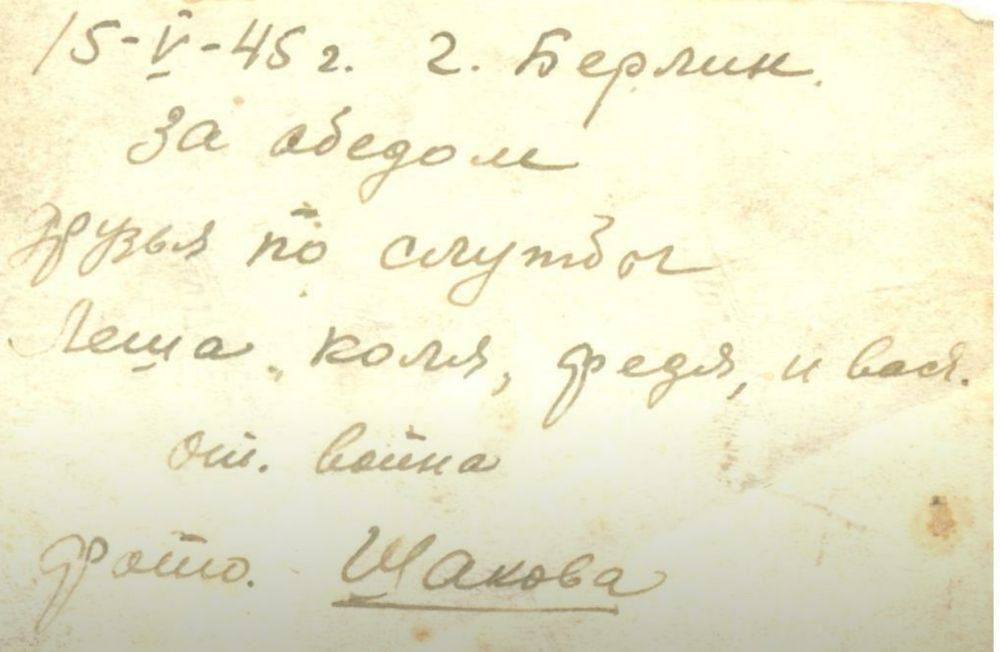 15-V-45 г. г. Берлин.
За обедом
Друзья по службы
Леша, Коля, Федя, и Вася.
От. воина
Фото. Шакова